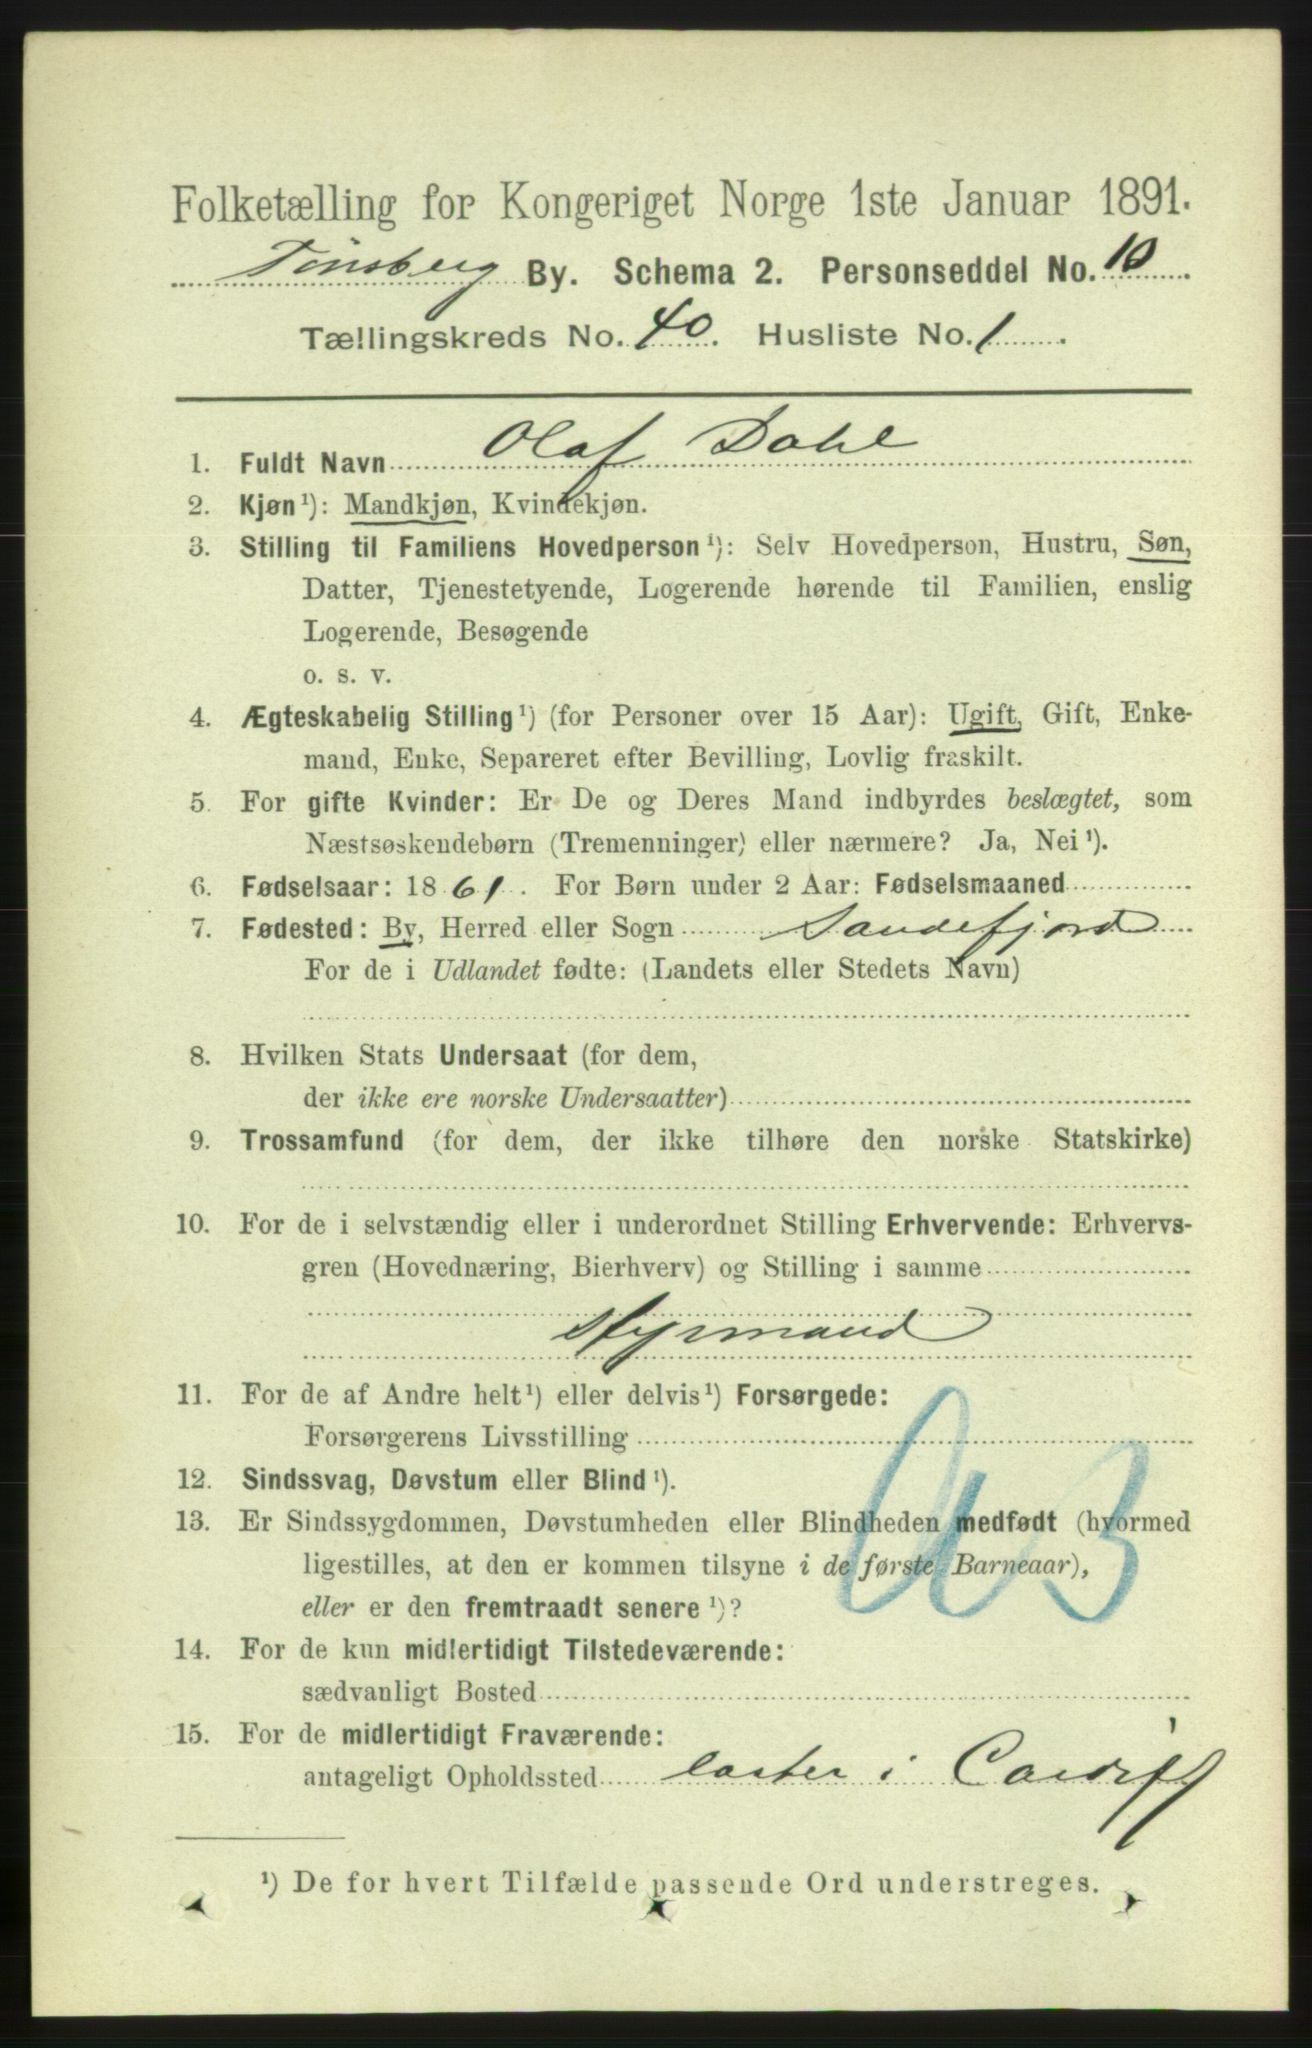 Folketælling for Kongeriget Norge 1ste Januar 1891.
Tønsberg By. Schema 2. Personseddel No. 10
Tællingskreds No. 40. Husliste No. 1.
1. Fuldt Navn Olaf Dahl
2. Kjøn ¹): Mandkjøn, Kvindekjøn.
3. Stilling til Familiens Hovedperson ¹): Selv Hovedperson, Hustru, Søn,
Datter, Tjenestetyende, Logerende hørende til Familien, enslig
Logerende, Besøgende
o. s. v.
4. Ægteskabelig Stilling ¹) (for Personer over 15 Aar): Ugift, Gift, Enke-
mand, Enke, Separeret efter Bevilling, Lovlig fraskilt.
5. For gifte Kvinder: Er De og Deres Mand indbyrdes beslægtet, som
Næstsøskendebørn (Tremenninger) eller nærmere? Ja, Nei ¹).
6. Fødselsaar: 1861. For Børn under 2 Aar: Fødselsmaaned
7. Fødested: By, Herred eller Sogn Sandefjord
For de i Udlandet fødte: (Landets eller Stedets Navn)
8. Hvilken Stats Undersaat (for dem,
der ikke ere norske Undersaatter)
9. Trossamfund (for dem, der ikke tilhøre den norske Statskirke)
10. For de i selvstændig eller i underordnet Stilling Erhvervende: Erhvervs-
gren (Hovednæring, Bierhverv) og Stilling i samme
Styrmand
11. For de af Andre helt ¹) eller delvis ¹) Forsørgede:
Forsørgerens Livsstilling
12. Sindssvag, Døvstum eller Blind ¹).
13. Er Sindssygdommen, Døvstumheden eller Blindheden medfødt (hvormed
ligestilles, at den er kommen tilsyne i de første Barneaar),
eller er den fremtraadt senere ¹)?
14. For de kun midlertidigt Tilstedeværende:
sædvanligt Bosted
15. For de midlertidigt Fraværende:
antageligt Opholdssted laster i Cardiff
¹) De for hvert Tilfælde passende Ord understreges.